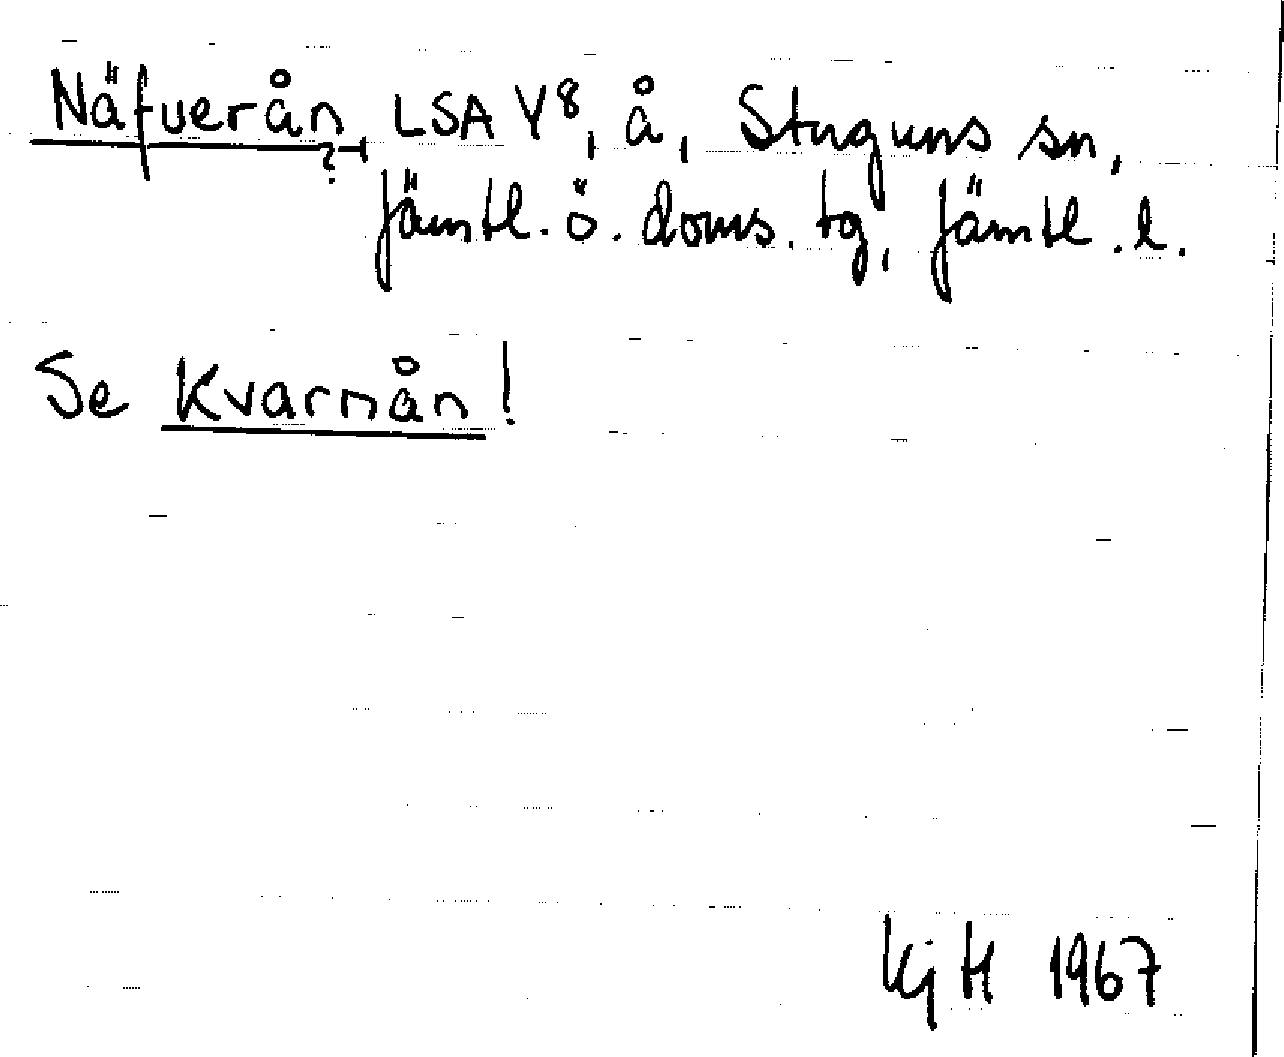 Näfverån, LSA Y8, å, Stuguns sn,
?
Jämtl. ö. doms. tg, Jämtl. l.
Se Kvarnån!
KjH 1967